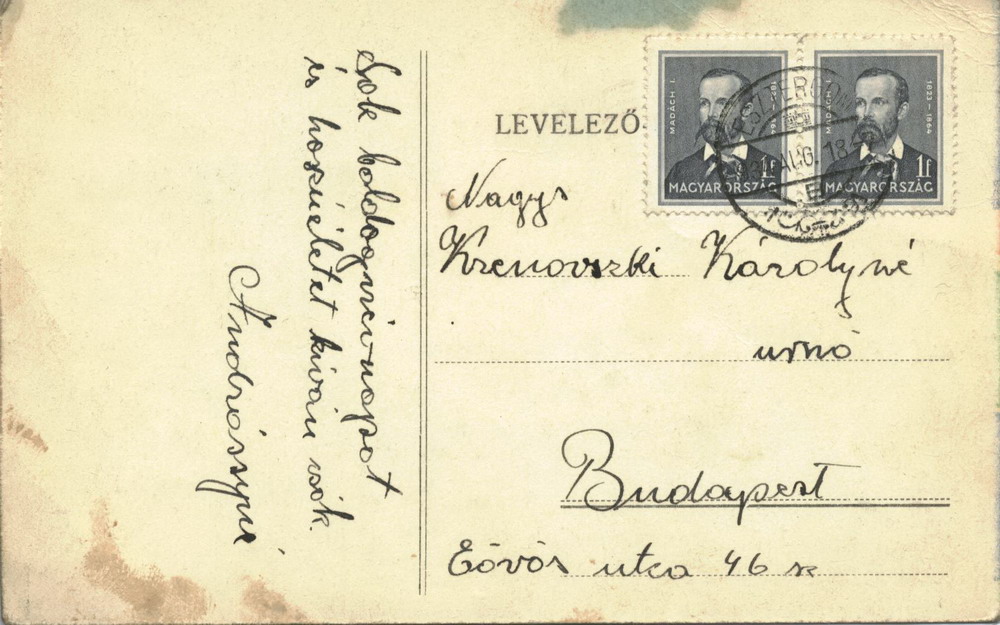 Sok boldog névnapot
és hozzá életet kíván csók.
Andrássyné
LEVELEZŐ
MADÁCH I.
1823-1864
1f
MAGYARORSZÁG
MADÁCH I.
1823-1864
1f
MAGYARORSZÁG
ESZTERGOM
AUG. 18
E
Nagys
Krenovszki Károlyné
urnő
Budapest
Eövös utca 46 sz